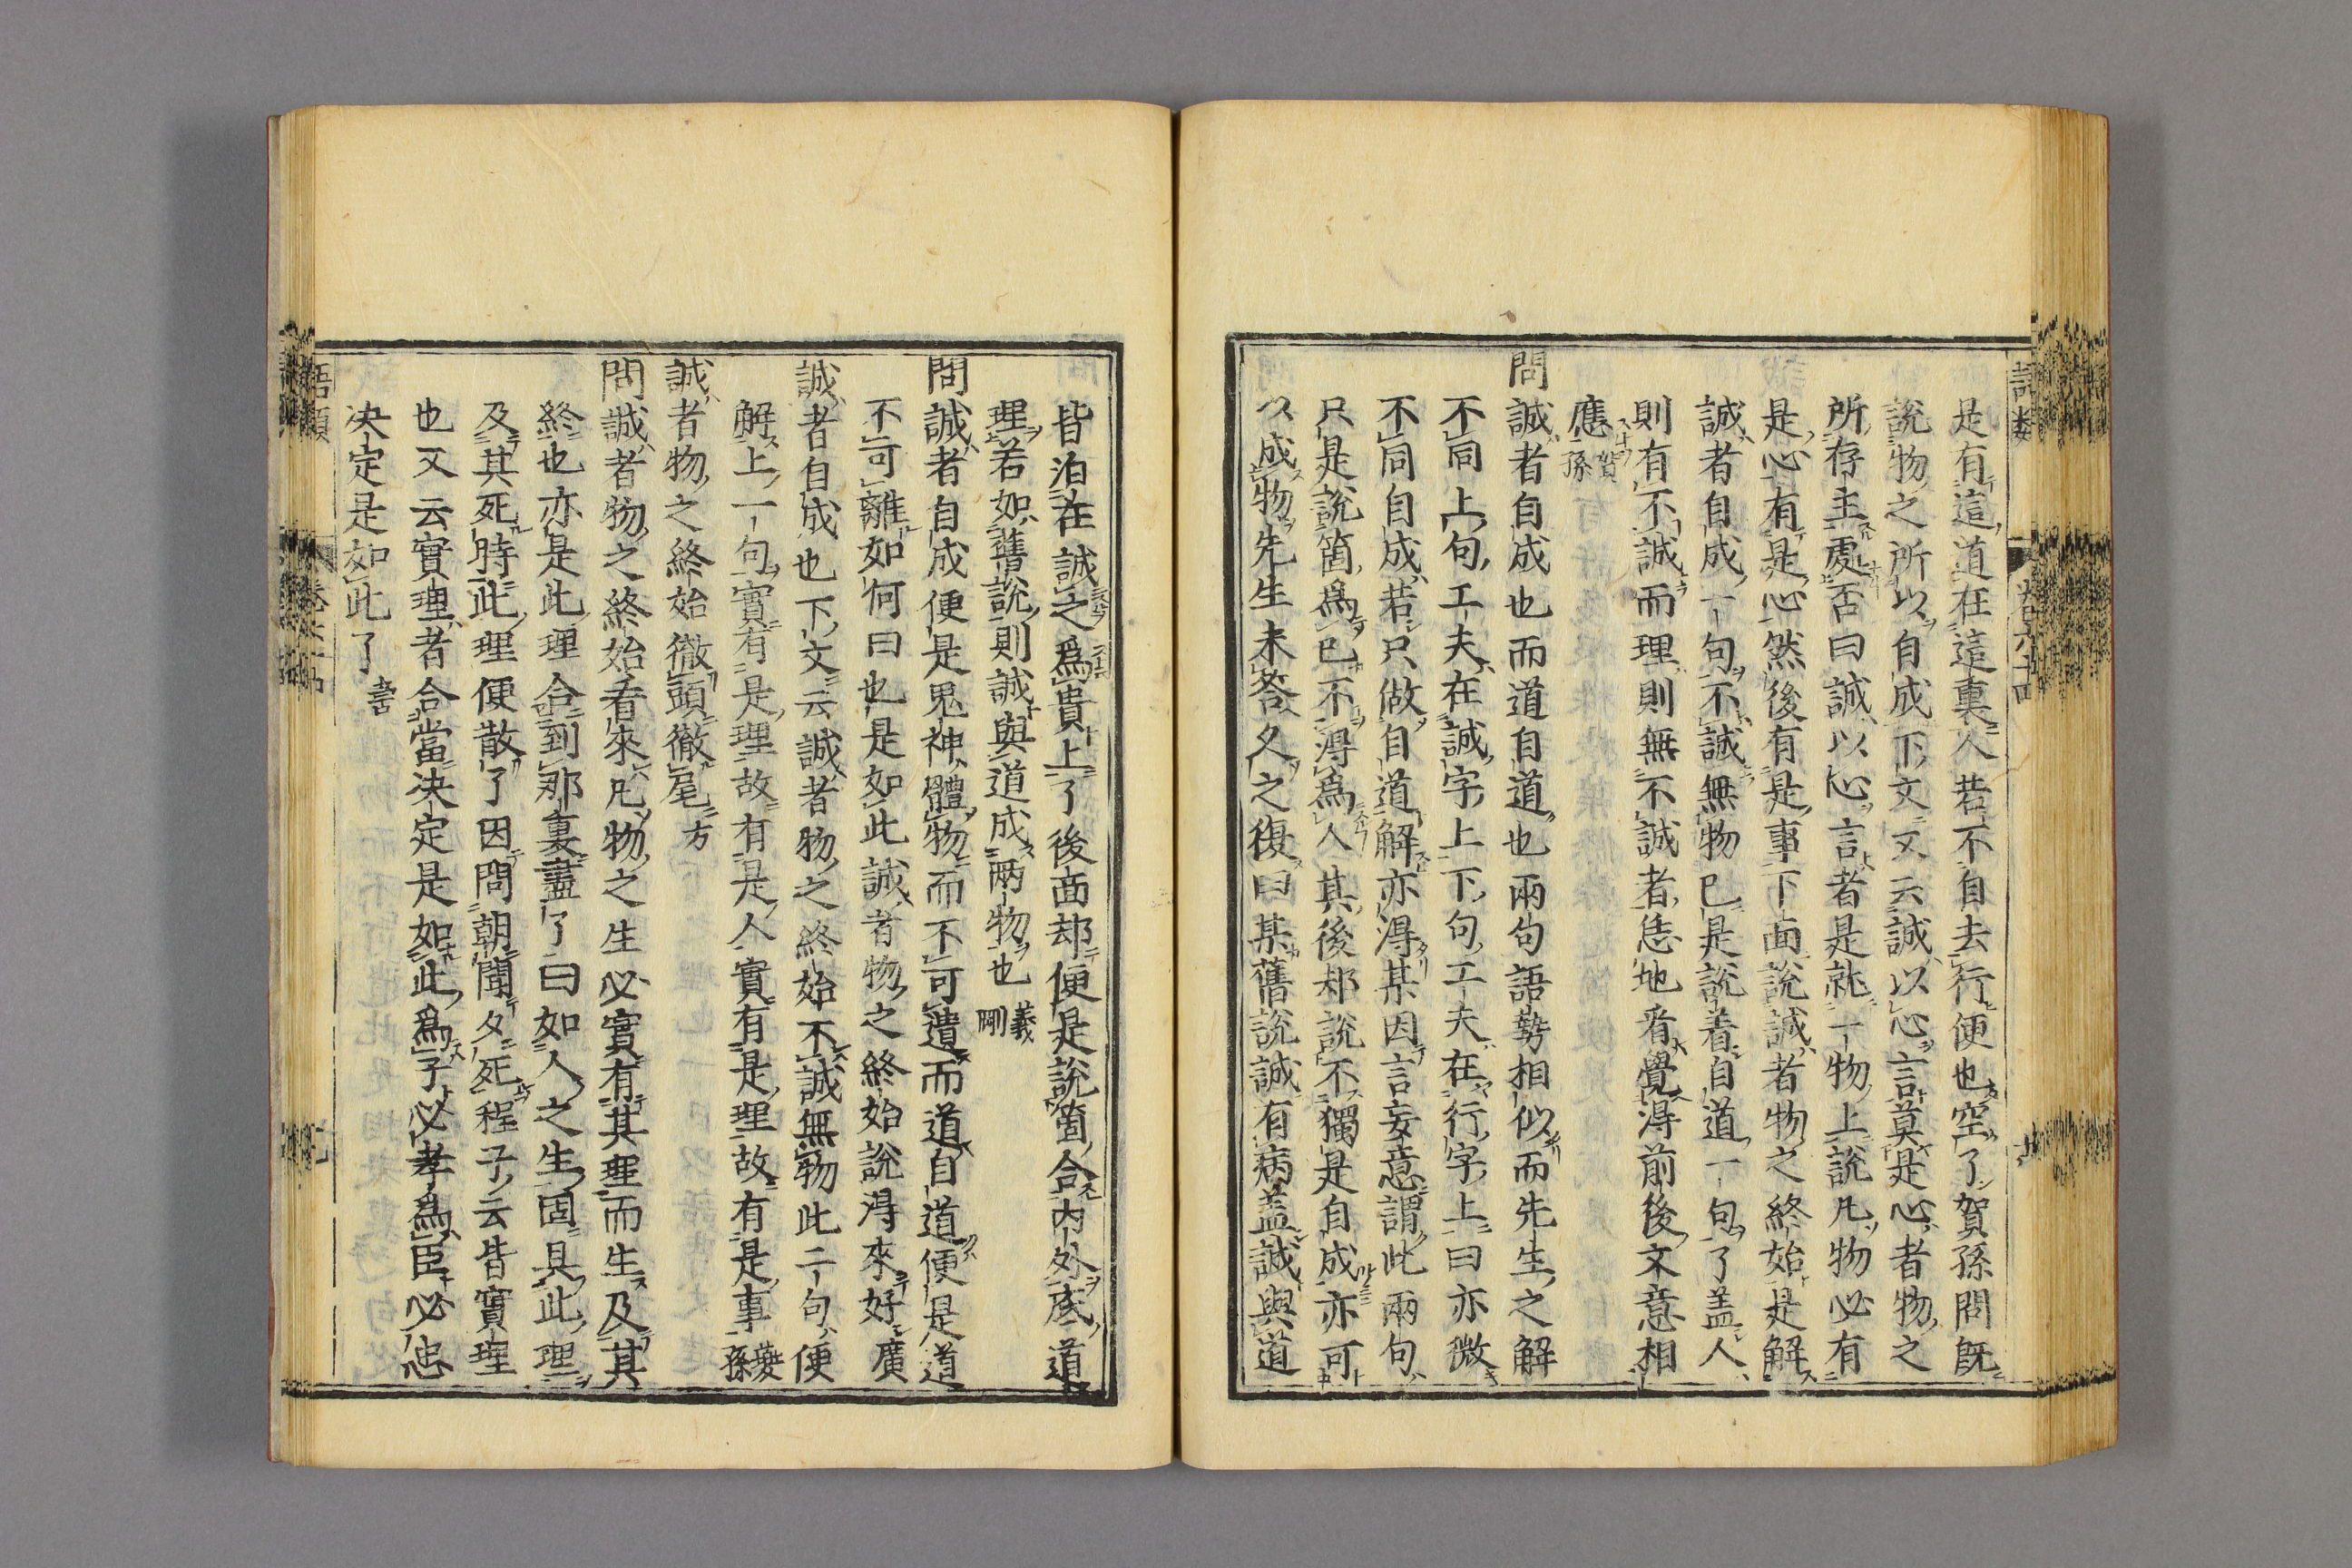 是有這道在這裏人若不自去行便也空了賀孫問既
說物之所以自成下文又云誠以心言莫是心者物之
所存主處否曰誠以心言者是就一物上說凡物必有
是心有是心然後有是事下面說誠者物之終始是解
誠者自成一句不誠無物已是說着自道一句了盖人
則有不誠而理則無不誠者恁地看覺得前後文意相
應賀孫
問誠者自成也而道自道也兩句語勢相似而先生之解
不同上句工夫在誠字上下句工夫在行字上曰亦微
不同自成若只做自道解亦得某因言妄意謂此兩句
只是說箇爲已不得爲人其後却說不獨是自成亦可
以成物先生未答久之復曰某舊說誠有病盖誠與道
皆泊在誠之爲貴上了後面却便是說箇合内外底道
理若如舊說則誠與道成兩物也義剛
問誠者自成便是鬼神體物而不可遺而道自道便是道
不可離如何曰也是如此誠者物之終始說得來好廣
誠者自成也下文云誠者物之終始不誠無物此二句便
解上一句實有是理故有是人實有是理故有是事㬊孫
誠者物之終始徹頭徹尾方
問誠者物之終始看來凡物之生必實有其理而生及其
終也亦是此理合到那裏盡了曰如人之生固具此理
及其死時此理便散了因問朝聞夕死程子云皆實理
也又云實理者合當决定是如此爲子必孝爲臣必忠
决定是如此了